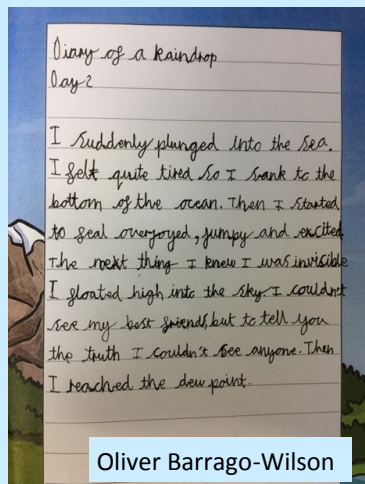 Diary of a Raindrop
Day 2
I suddenly plunged into the sea.
I felt quite tired so I sank to the
bottom of the ocean. Then I started
to feal overjoyed, jumpy and excited
The next thing I knew I was invisible
I floated high into the sky I couldn't
see my best friends, but to tell you
the truth I couldn't see anyone. Then
I reached the dew point.
Oliver Barrago-Wilson